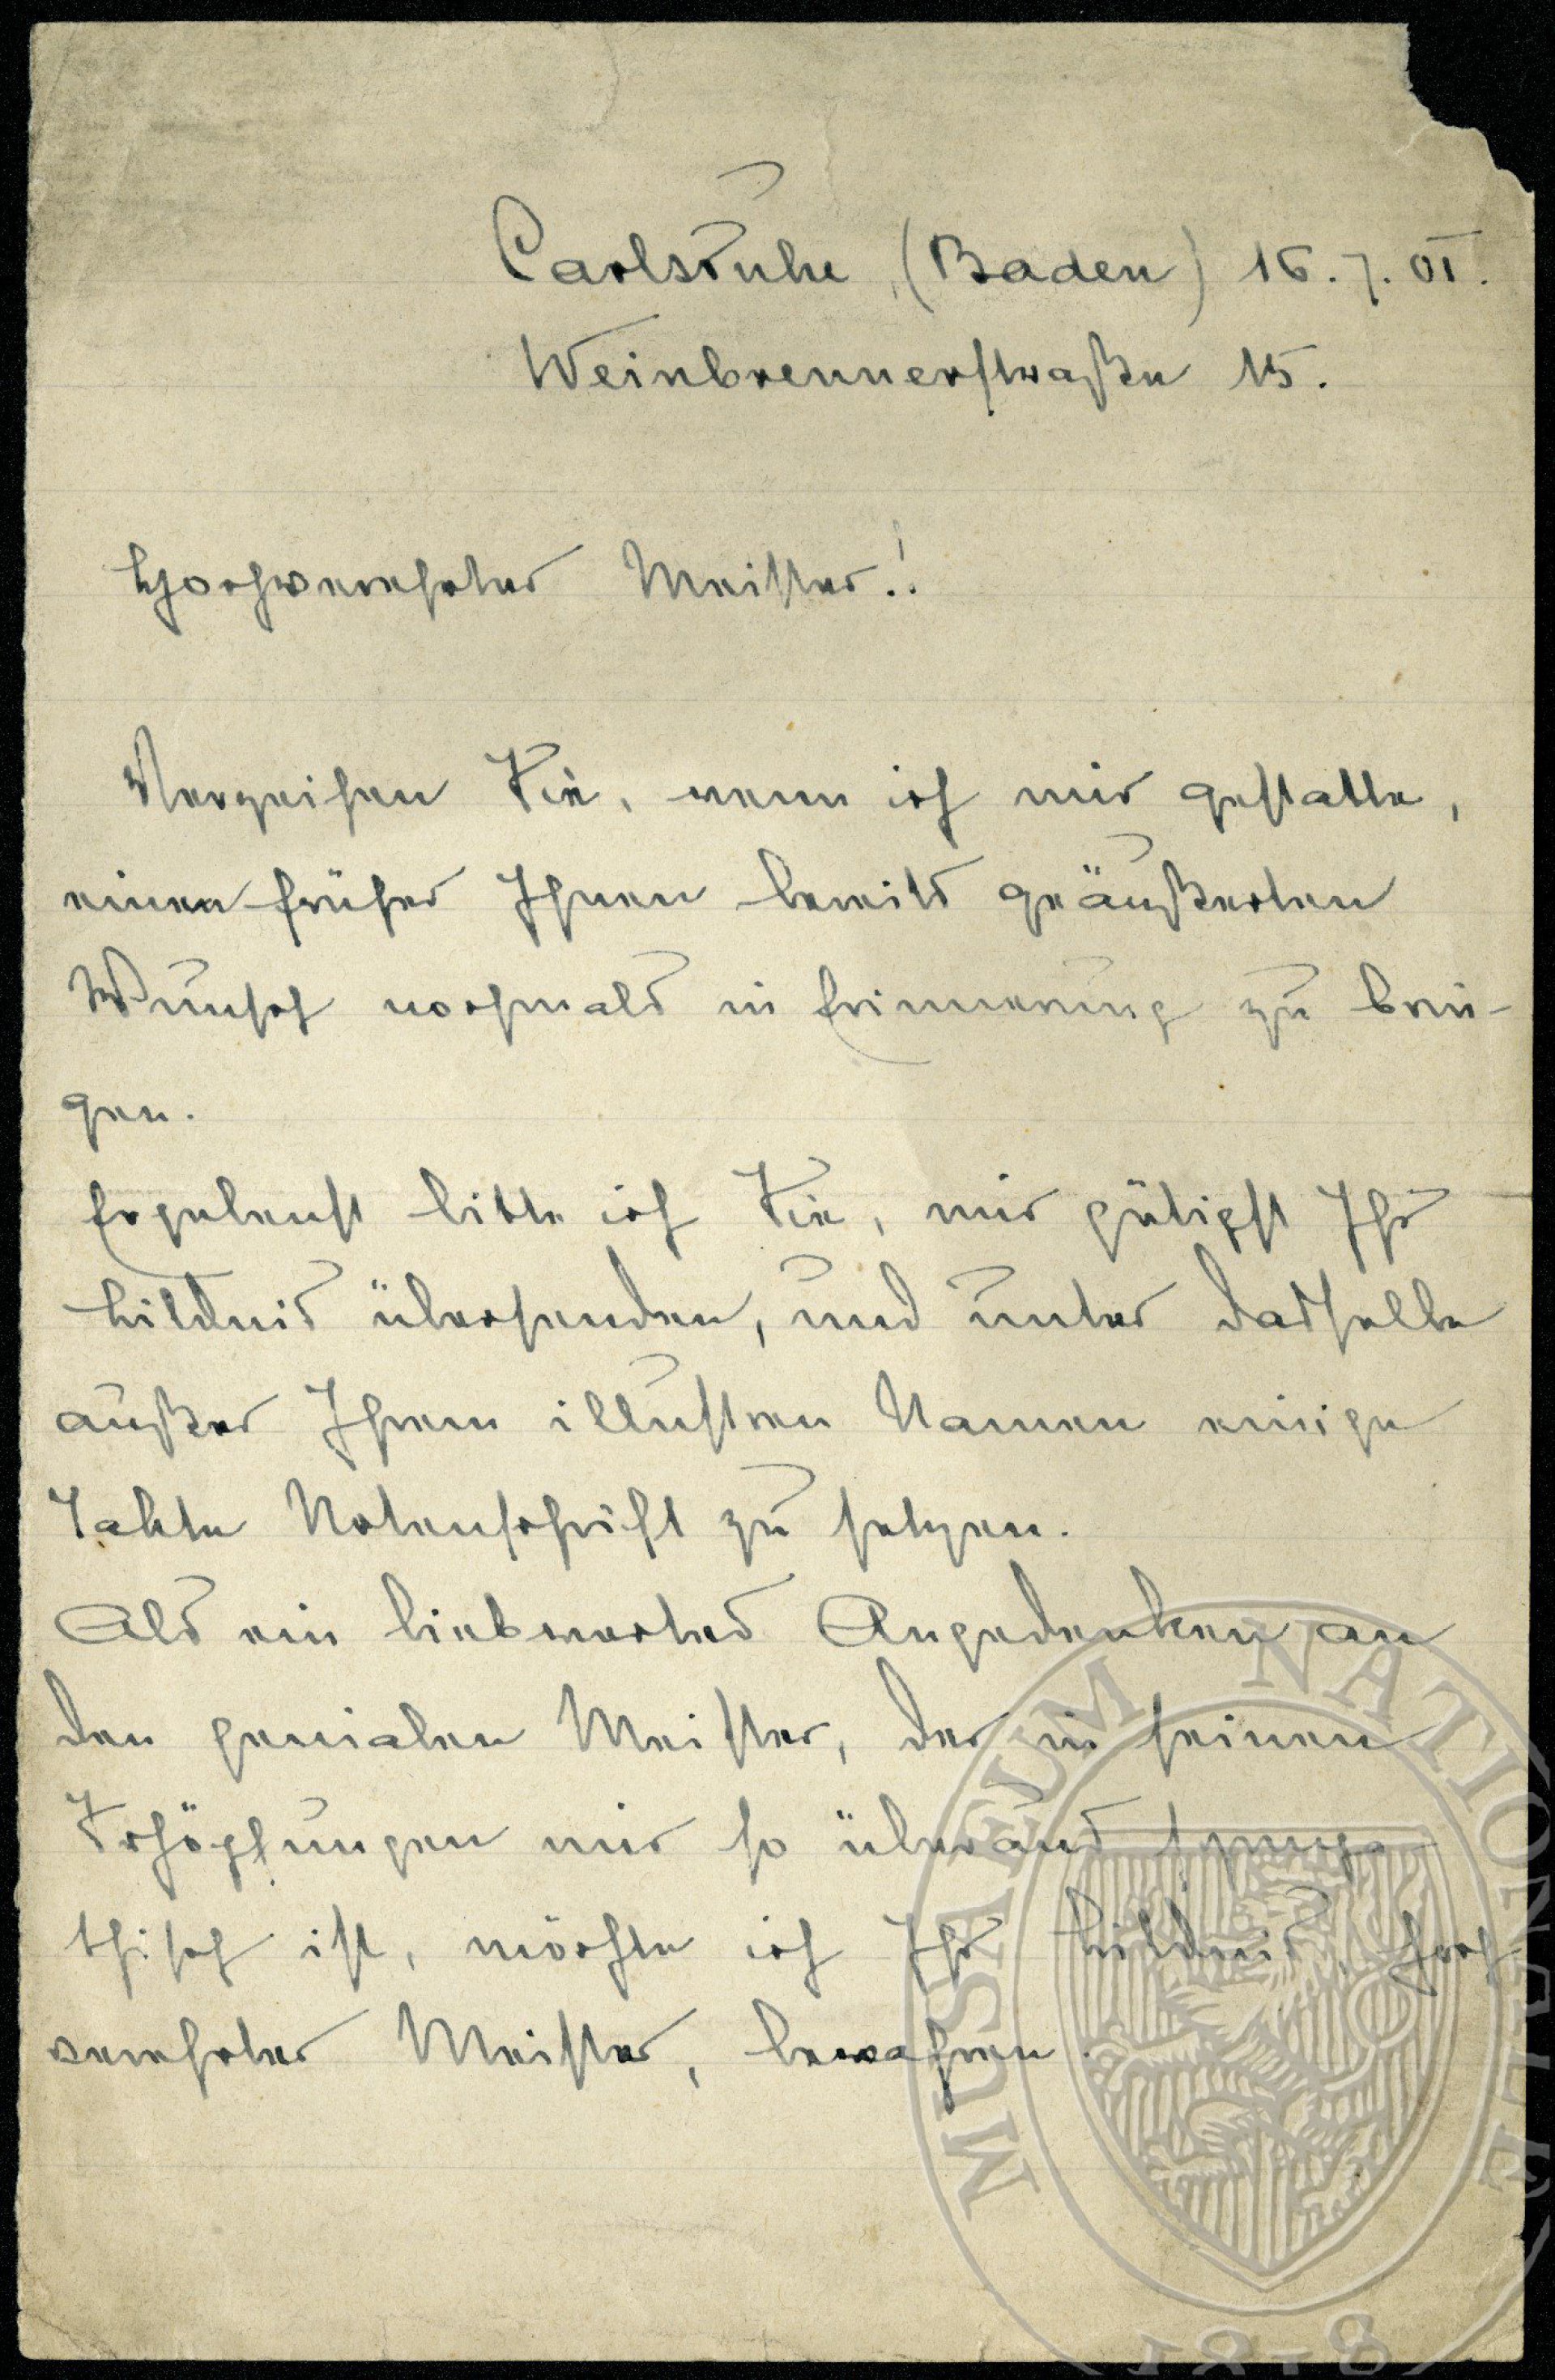 Carlsruhe, (Baden) 16. 7. 01.
Weinbrennerstraße 15.
Hochverehrter Meister!
Verzeihen Sie, wenn ich mir gestatte,
einen früher Ihnen bereits geäußerten
Wunsch nochmals in Erinnerung zu brin-
gen.
Ergebenst bitte ich Sie, mir gütigst Ihr
Bildnis übersenden, und unter dasselbe
außer Ihrem illustren Namen einige
Takte Notenschrift zu setzen.
Als ein liebwertes Angedenken an
den genialen Meister, der in seinen
Schöpfungen mir so überaus sympa-
thisch ist, möchte ich Ihr Bildnis, hoch-
verehrter Meister, bewahren.
MUSAEUM NATIONALE
1818